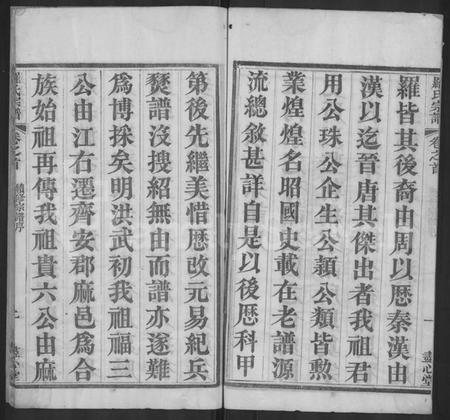 羅氏宗譜
卷之首
一
藎心堂
羅皆其後裔由周以歷秦漢由
漢以迄晉唐其傑出者我祖君
用公珠公企生公顥公類皆勲
業煌煌名昭國史載在老譜源
流總敘甚詳自是以後歷科甲
第後先繼美惜歷改元易紀兵
燹譜沒搜紹無由而譜亦遂難
爲博採矣明洪武初我祖福三
公由江右遷齊安郡麻邑爲合
族始祖再傳我祖貴六公由麻
羅氏宗譜
卷之首
續修宗譜序